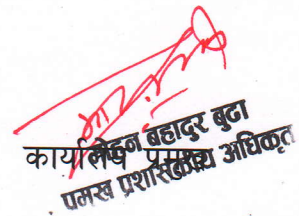 मोहन बहादुर बुढा
कार्यालय प्रमुख
प्रमुख प्रशासकीय अधिकृत